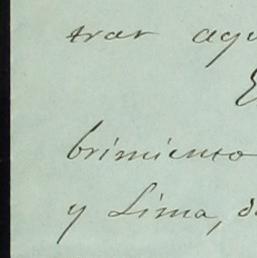 trar aqu
brimiento
y Lima, d